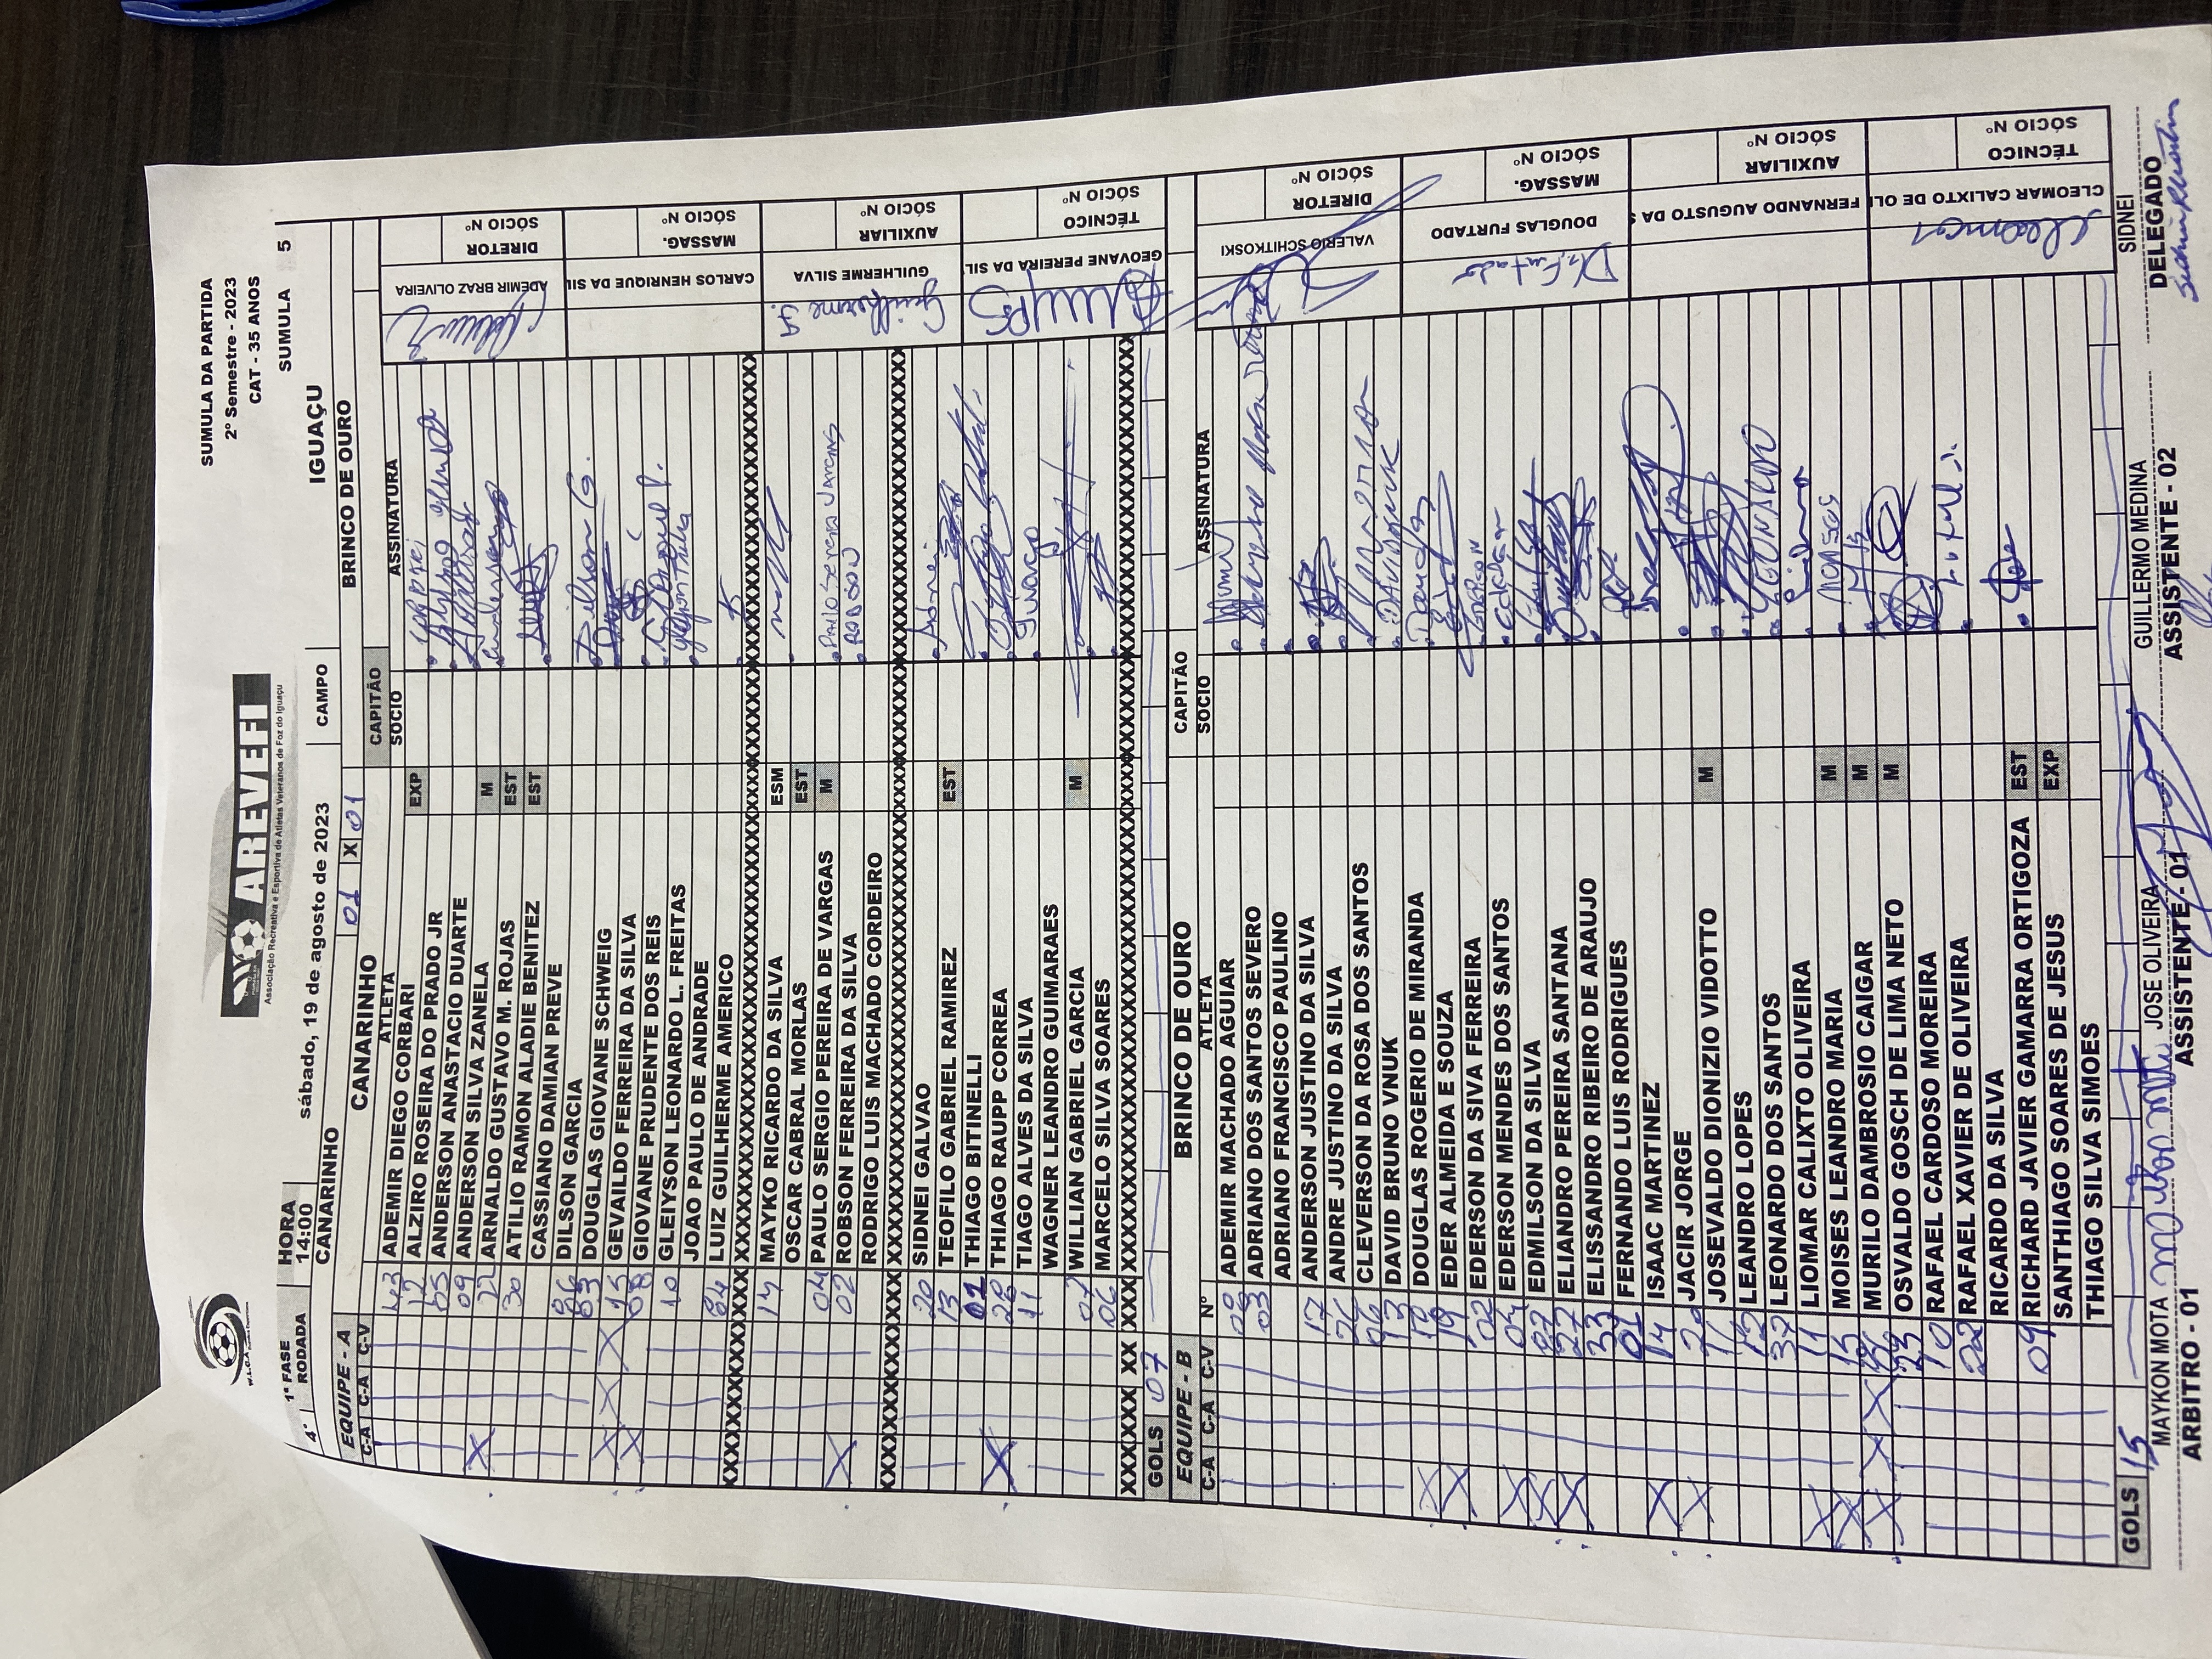 W.L.C.A
AREVEFI
Associação Recreativa e Esportiva de Atletas Veteranos de Foz do Iguaçu
SUMULA DA PARTIDA
2º Semestre - 2023
CAT - 35 ANOS
4ª 1ª FASE RODADA HORA 14:00 sábado, 19 de agosto de 2023 CAMPO IGUAÇU SUMULA 5
CANARINHO 01 X 01 BRINCO DE OURO
EQUIPE - A CANARINHO CAPITÃO
C-A C-A C-V ATLETA SOCIO ASSINATURA
43 ADEMIR DIEGO CORBARI EXP
12 ALZIRO ROSEIRA DO PRADO JR
05 ANDERSON ANASTACIO DUARTE
X 09 ANDERSON SILVA ZANELA M
22 ARNALDO GUSTAVO M. ROJAS EST
30 ATILIO RAMON ALADIE BENITEZ EST
CASSIANO DAMIAN PREVE
06 DILSON GARCIA Dilson G.
03 DOUGLAS GIOVANE SCHWEIG
X X X 15 GEVAILDO FERREIRA DA SILVA
X 08 GIOVANE PRUDENTE DOS REIS
10 GLEIYSON LEONARDO L. FREITAS
JOAO PAULO DE ANDRADE
84 LUIZ GUILHERME AMERICO
XXXXXXXXXXXXXXXXXXXXXXXXXXXXXXXX
14 MAYKO RICARDO DA SILVA ESM
OSCAR CABRAL MORLAS EST
04 PAULO SERGIO PEREIRA DE VARGAS M
X 02 ROBSON FERREIRA DA SILVA ROBSON
RODRIGO LUIS MACHADO CORDEIRO
XXXXXXXXXXXXXXXXXXXXXXXXXXXXXXXX
20 SIDNEI GALVAO
13 TEOFILO GABRIEL RAMIREZ EST
01 THIAGO BITINELLI
X 28 THIAGO RAUPP CORREA
11 TIAGO ALVES DA SILVA
WAGNER LEANDRO GUIMARAES
07 WILLIAN GABRIEL GARCIA M
06 MARCELO SILVA SOARES
XXXXXXXXXXXXXXXXXXXXXXXXXXXXXXXX
GOLS 07
ADEMIR BRAZ OLIVEIRA DIRETOR SÓCIO Nº
CARLOS HENRIQUE DA SIL MASSAG. SÓCIO Nº
Guilherme S. GUILHERME SILVA AUXILIAR SÓCIO Nº
GEOVANE PEREIRA DA SIL TÉCNICO SÓCIO Nº
EQUIPE - B BRINCO DE OURO CAPITÃO
C-A C-A C-V Nº ATLETA SOCIO ASSINATURA
ADEMIR MACHADO AGUIAR
ADRIANO DOS SANTOS SEVERO
03 ADRIANO FRANCISCO PAULINO
17 ANDERSON JUSTINO DA SILVA
26 ANDRE JUSTINO DA SILVA
06 CLEVERSON DA ROSA DOS SANTOS
13 DAVID BRUNO VNUK
X DOUGLAS ROGERIO DE MIRANDA
X 19 EDER ALMEIDA E SOUZA
02 EDERSON DA SIVA FERREIRA
X EDERSON MENDES DOS SANTOS
X 07 EDMILSON DA SILVA
X 27 ELIANDRO PEREIRA SANTANA
33 ELISSANDRO RIBEIRO DE ARAUJO
01 FERNANDO LUIS RODRIGUES
X 14 ISAAC MARTINEZ
X JACIR JORGE
JOSEVALDO DIONIZIO VIDOTTO M
12 LEANDRO LOPES
37 LEONARDO DOS SANTOS LEONARDO
11 LIOMAR CALIXTO OLIVEIRA
X 15 MOISES LEANDRO MARIA M
X MURILO DAMBROSIO CAIGAR M
X X X 23 OSVALDO GOSCH DE LIMA NETO M
10 RAFAEL CARDOSO MOREIRA
RAFAEL XAVIER DE OLIVEIRA
RICARDO DA SILVA
09 RICHARD JAVIER GAMARRA ORTIGOZA EST
SANTHIAGO SOARES DE JESUS EXP
THIAGO SILVA SIMOES
GOLS 15
VALERIO SCHITKOSKI DIRETOR SÓCIO Nº
DOUGLAS FURTADO MASSAG. SÓCIO Nº
FERNANDO AUGUSTO DA S AUXILIAR SÓCIO Nº
Cleomar CLEOMAR CALIXTO DE OLI TÉCNICO SÓCIO Nº
MAYKON MOTA JOSE OLIVEIRA GUILLERMO MEDINA SIDNEI
ARBITRO - 01 ASSISTENTE - 01 ASSISTENTE - 02 DELEGADO